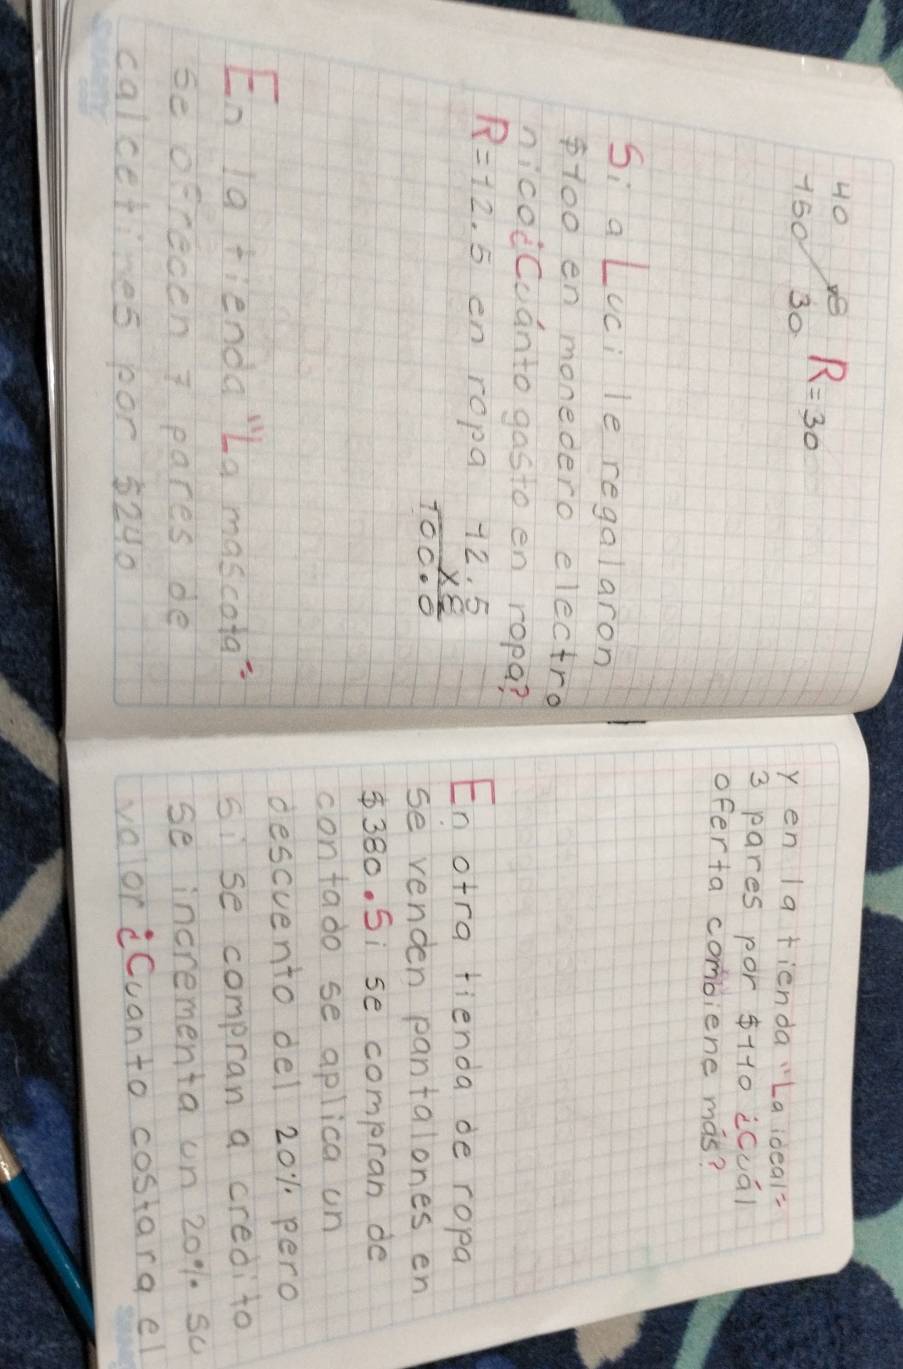 40 8
150 30 R=30
Si a Luci le regalaron
$100 en monedero electro
nico ¿Cuánto gasto en ropa?
R=12.5 en ropa 12.5
x8
100.0
En la tienda "La mascota"
se ofrecen 7 pares de
calcetines por $240
Y en la tienda "La ideal"
3 pares por $110 ¿Cuál
oferta combiene más?
En otra tienda de ropa
se venden pantalones en
$380. Si se compran de
contado se aplica un
descuento del 20% pero
si se compran a credito
se incrementa un 20% su
valor ¿Cuanto costara el